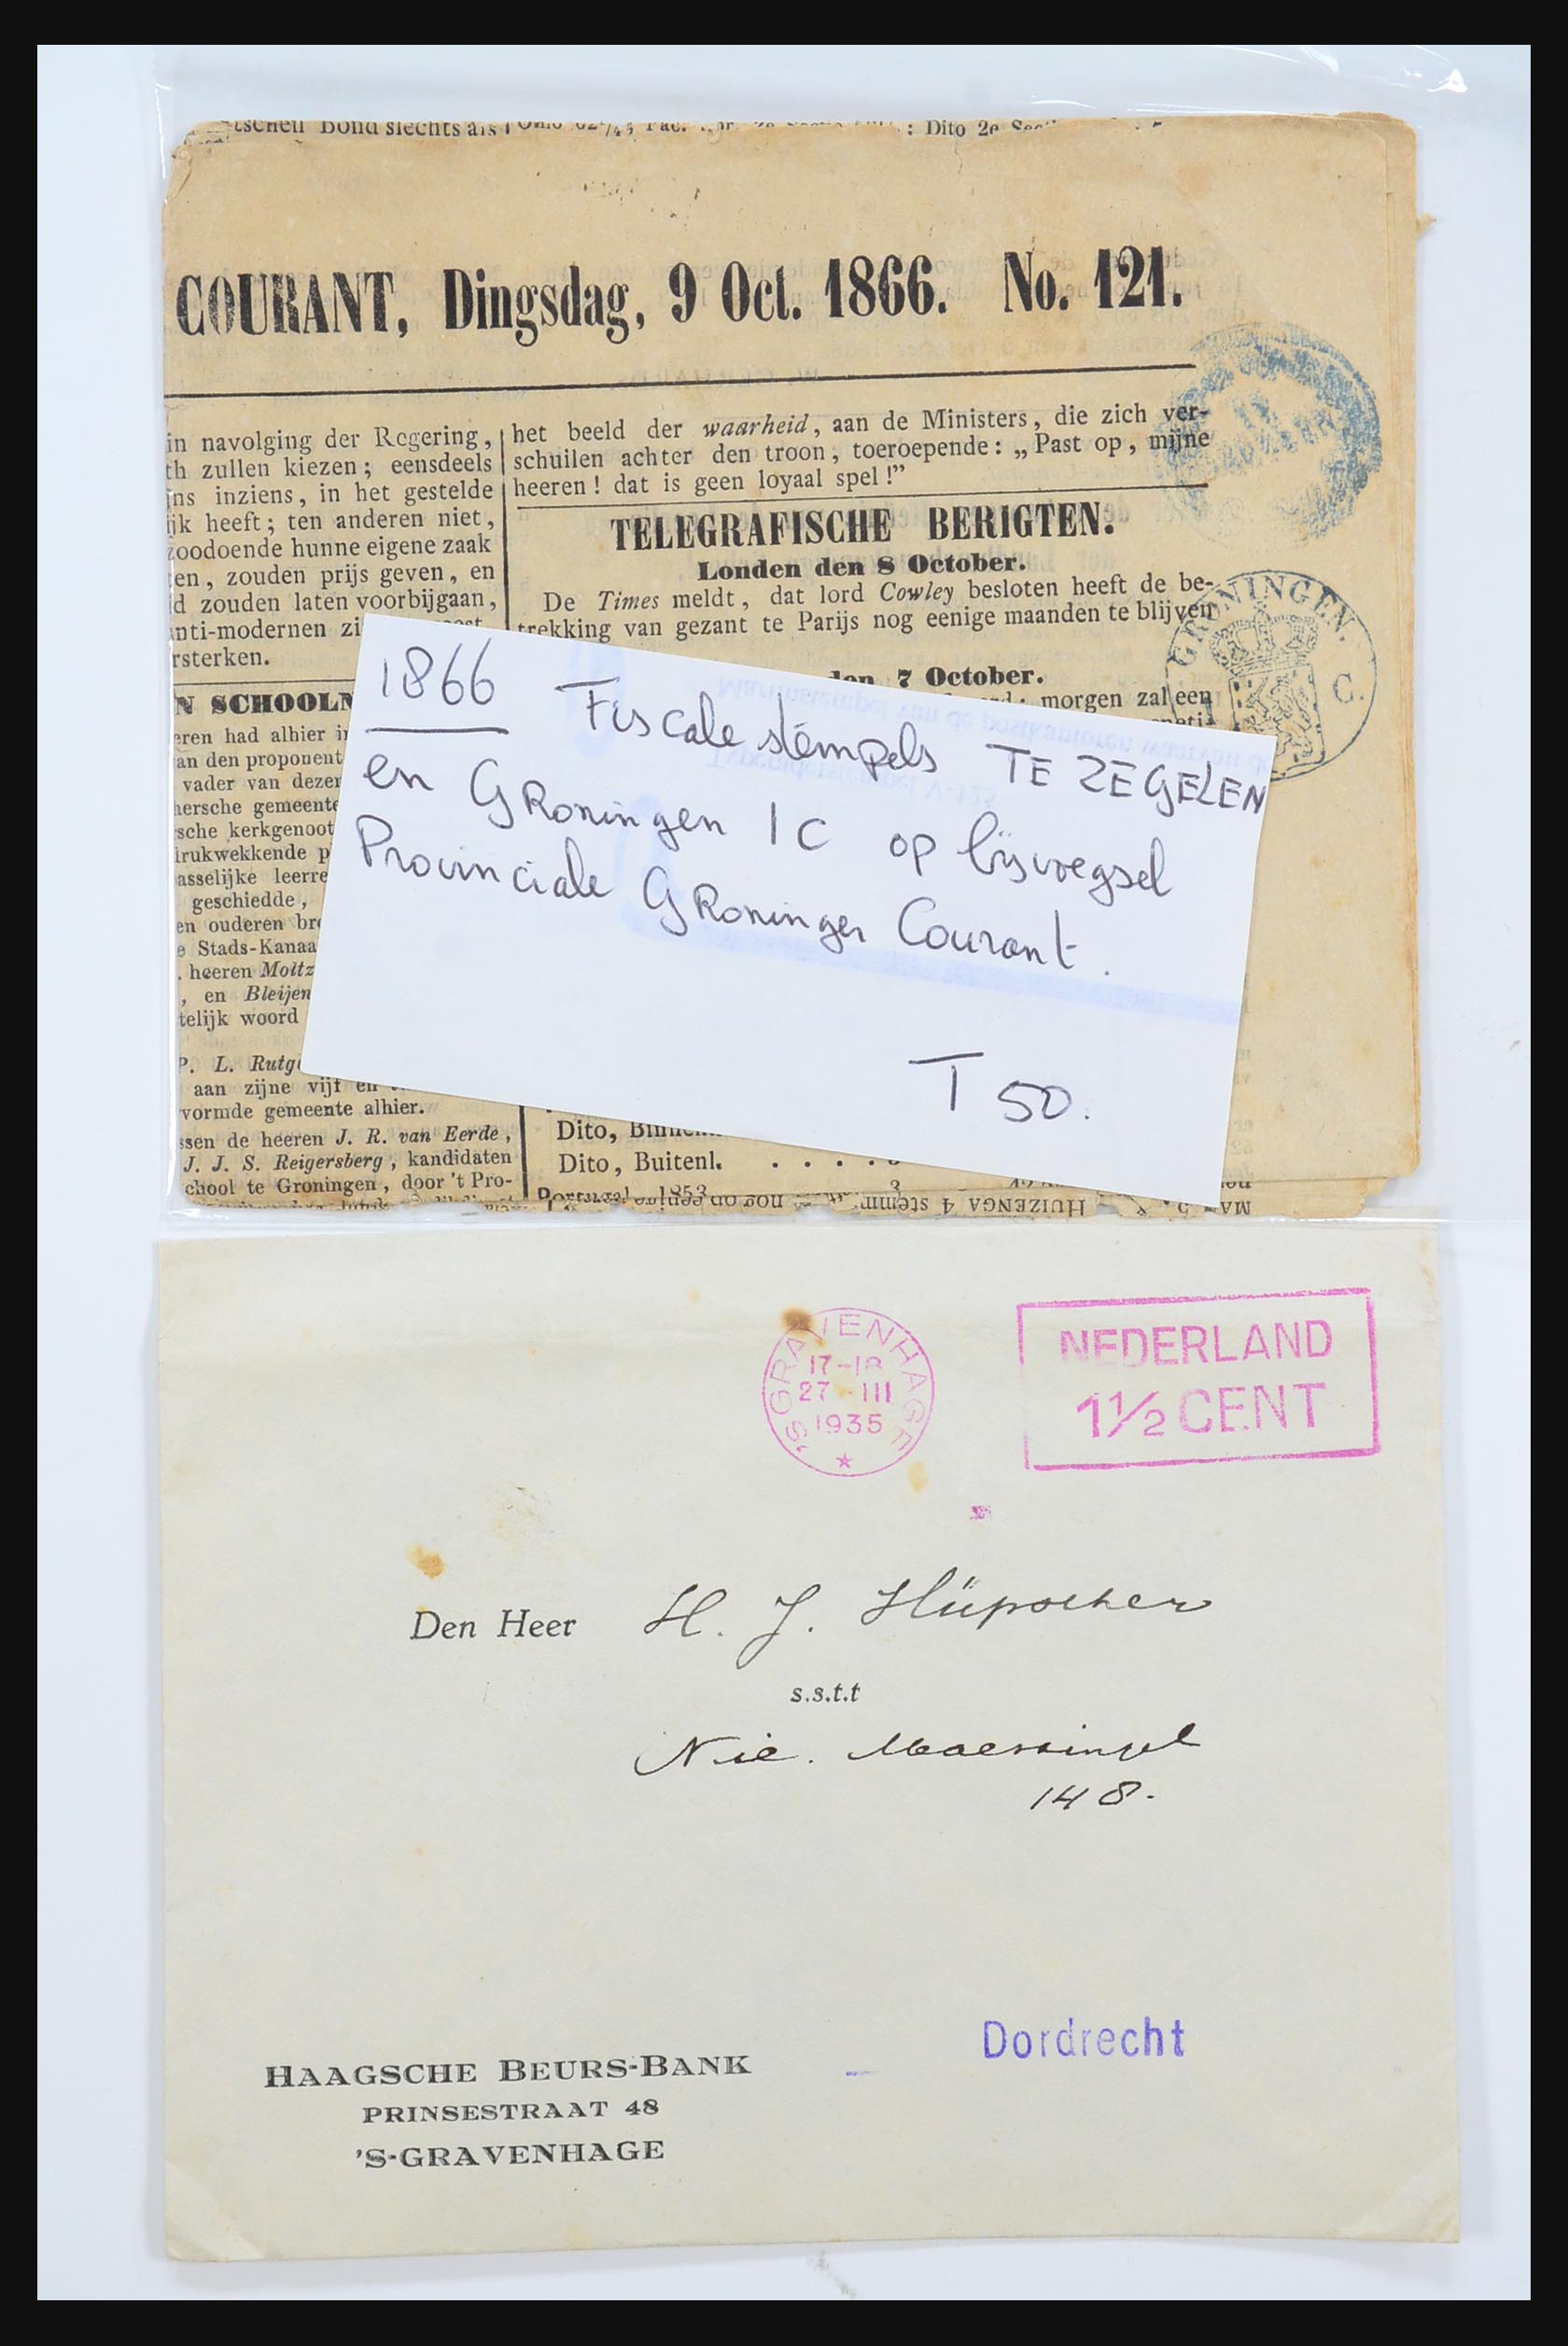 COURANT, Dingsdag, 9 Oct. 1866. No. 121.
in navolging der Regering,
th zullen kiezen; eensdeels
ins inziens, in het gestelde
ijk heeft; ten anderen niet,
zoodoende hunne eigene zaak
en, zouden prijs geven, en
d zouden laten voorbijgaan,
nti-modernen
rsterken.
N SCHOOLN
eren had alhier
an den proponent
vader van dezer
hersche gemeente
sche kerkgenoot
drukwekkende p
asselijke leerre
geschiedde,
en ouderen br
e Stads-Kanaa
. heeren Moltz
, en Bleijen
telijk woord
P. L. Rutg
aan zijne vijf en
vormde gemeente alhier.
ssen de heeren J. R. van Eerde,
J. J. S. Reigersberg, kandidaten
chool te Groningen, door 't Pro-
het beeld der waarheid, aan de Ministers, die zich ver-
schuilen achter den troon, toeroepende: „Past op, mijne
heeren! dat is geen loyaal spel!”
TELEGRAFISCHE BERIGTEN.
Londen den 8 October.
De Times meldt, dat lord Cowley besloten heeft de be-
trekking van gezant te Parijs nog eenige maanden te blijven
7 October.
morgen zal een
GRONINGEN.
C.
1866 Fiscale stempels TE ZEGELEN
en GRoningen 1 C op bijvoegsel
Provinciale GRoninger Courant.
T 50.
Dito,
Dito, Buitenl. . . . .
HUIZENGA 4 stemm
'S GRAVENHAGE
17-18
27 III
1935
NEDERLAND
1½ CENT
Den Heer H. J.
s.s.t.t
Nie. Maessingel
148.
Dordrecht
HAAGSCHE BEURS-BANK
PRINSESTRAAT 48
'S-GRAVENHAGE